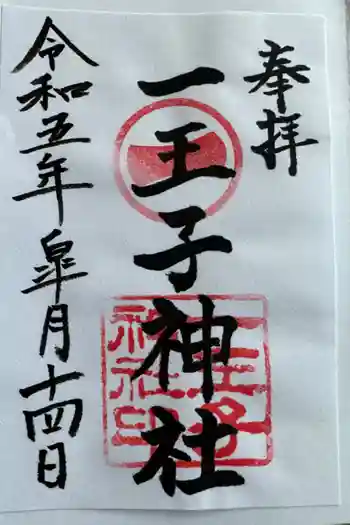 奉拝
一王子神社
一王子神社印
令和五年皐月十四日